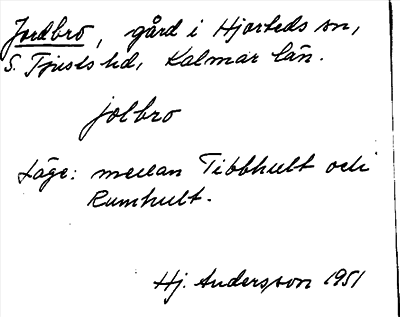 Jordbro, gård i Hjorteds sn,
S. Tjusts hd, Kalmar län.
jolbro
Läge: mellan Tibbhult och
Rumhult.
Hj. Andersson 1951